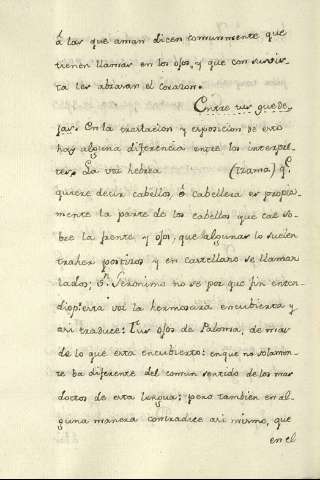 á las que aman dicen comunmente, que
tienen llamas en los ojos, y que con su vis-
ta les abrasan el corazon.
Entre tus guede-
jas. En la traslacion y exposicion de esto
hay alguna diferencia entre los interpre-
tes. La voz hebrea (tzama) qe.
quiere decir cabellos, ó cabellera es propia-
mente la parte de los cabellos que cae so-
bre la frente y ojos, que algunas lo suelen
traher postizos y en castellano se llaman
lados; Sn. Geronimo no se por que fin enten-
dio esta voz la hermosura encubierta y
asi traduce: Tus ojos de Paloma, de mas
de lo que esta encubierto: en que no solamen-
te ba diferente del comun sentido de los mas
doctos de esta lengua; pero tambien en al-
guna manera contradice asi mismo, que
en el